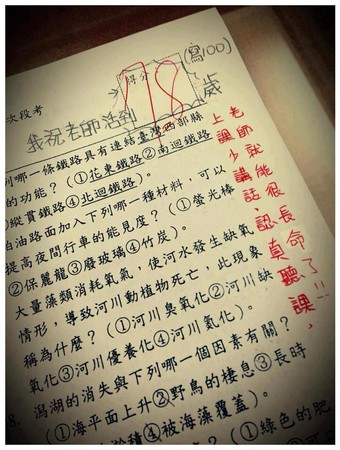 次段考
得分
(寫100)
我祝老師活到
歲
列哪一條鐵路具有連結臺灣西部縣
的功能？（①花東鐵路②南迴鐵路
縱貫鐵路④北迴鐵路）。
柏油路面加入下列哪一種材料，可以
提高夜間行車的能見度？（①螢光棒
②保麗龍③廢玻璃④竹炭）。
大量藻類消耗氧氣，使河水發生缺氧
情形，導致河川動植物死亡，此現象
稱為什麼？（①河川臭氧化②河川缺
氧化③河川優養化④河川氮化）。
潟湖的消失與下列哪一個因素有關？
（①海平面上升②野鳥的棲息③長時
④被海藻覆蓋）。
（①綠色的肥
老師就能很長命了!!
上課少講話、認真聽課，